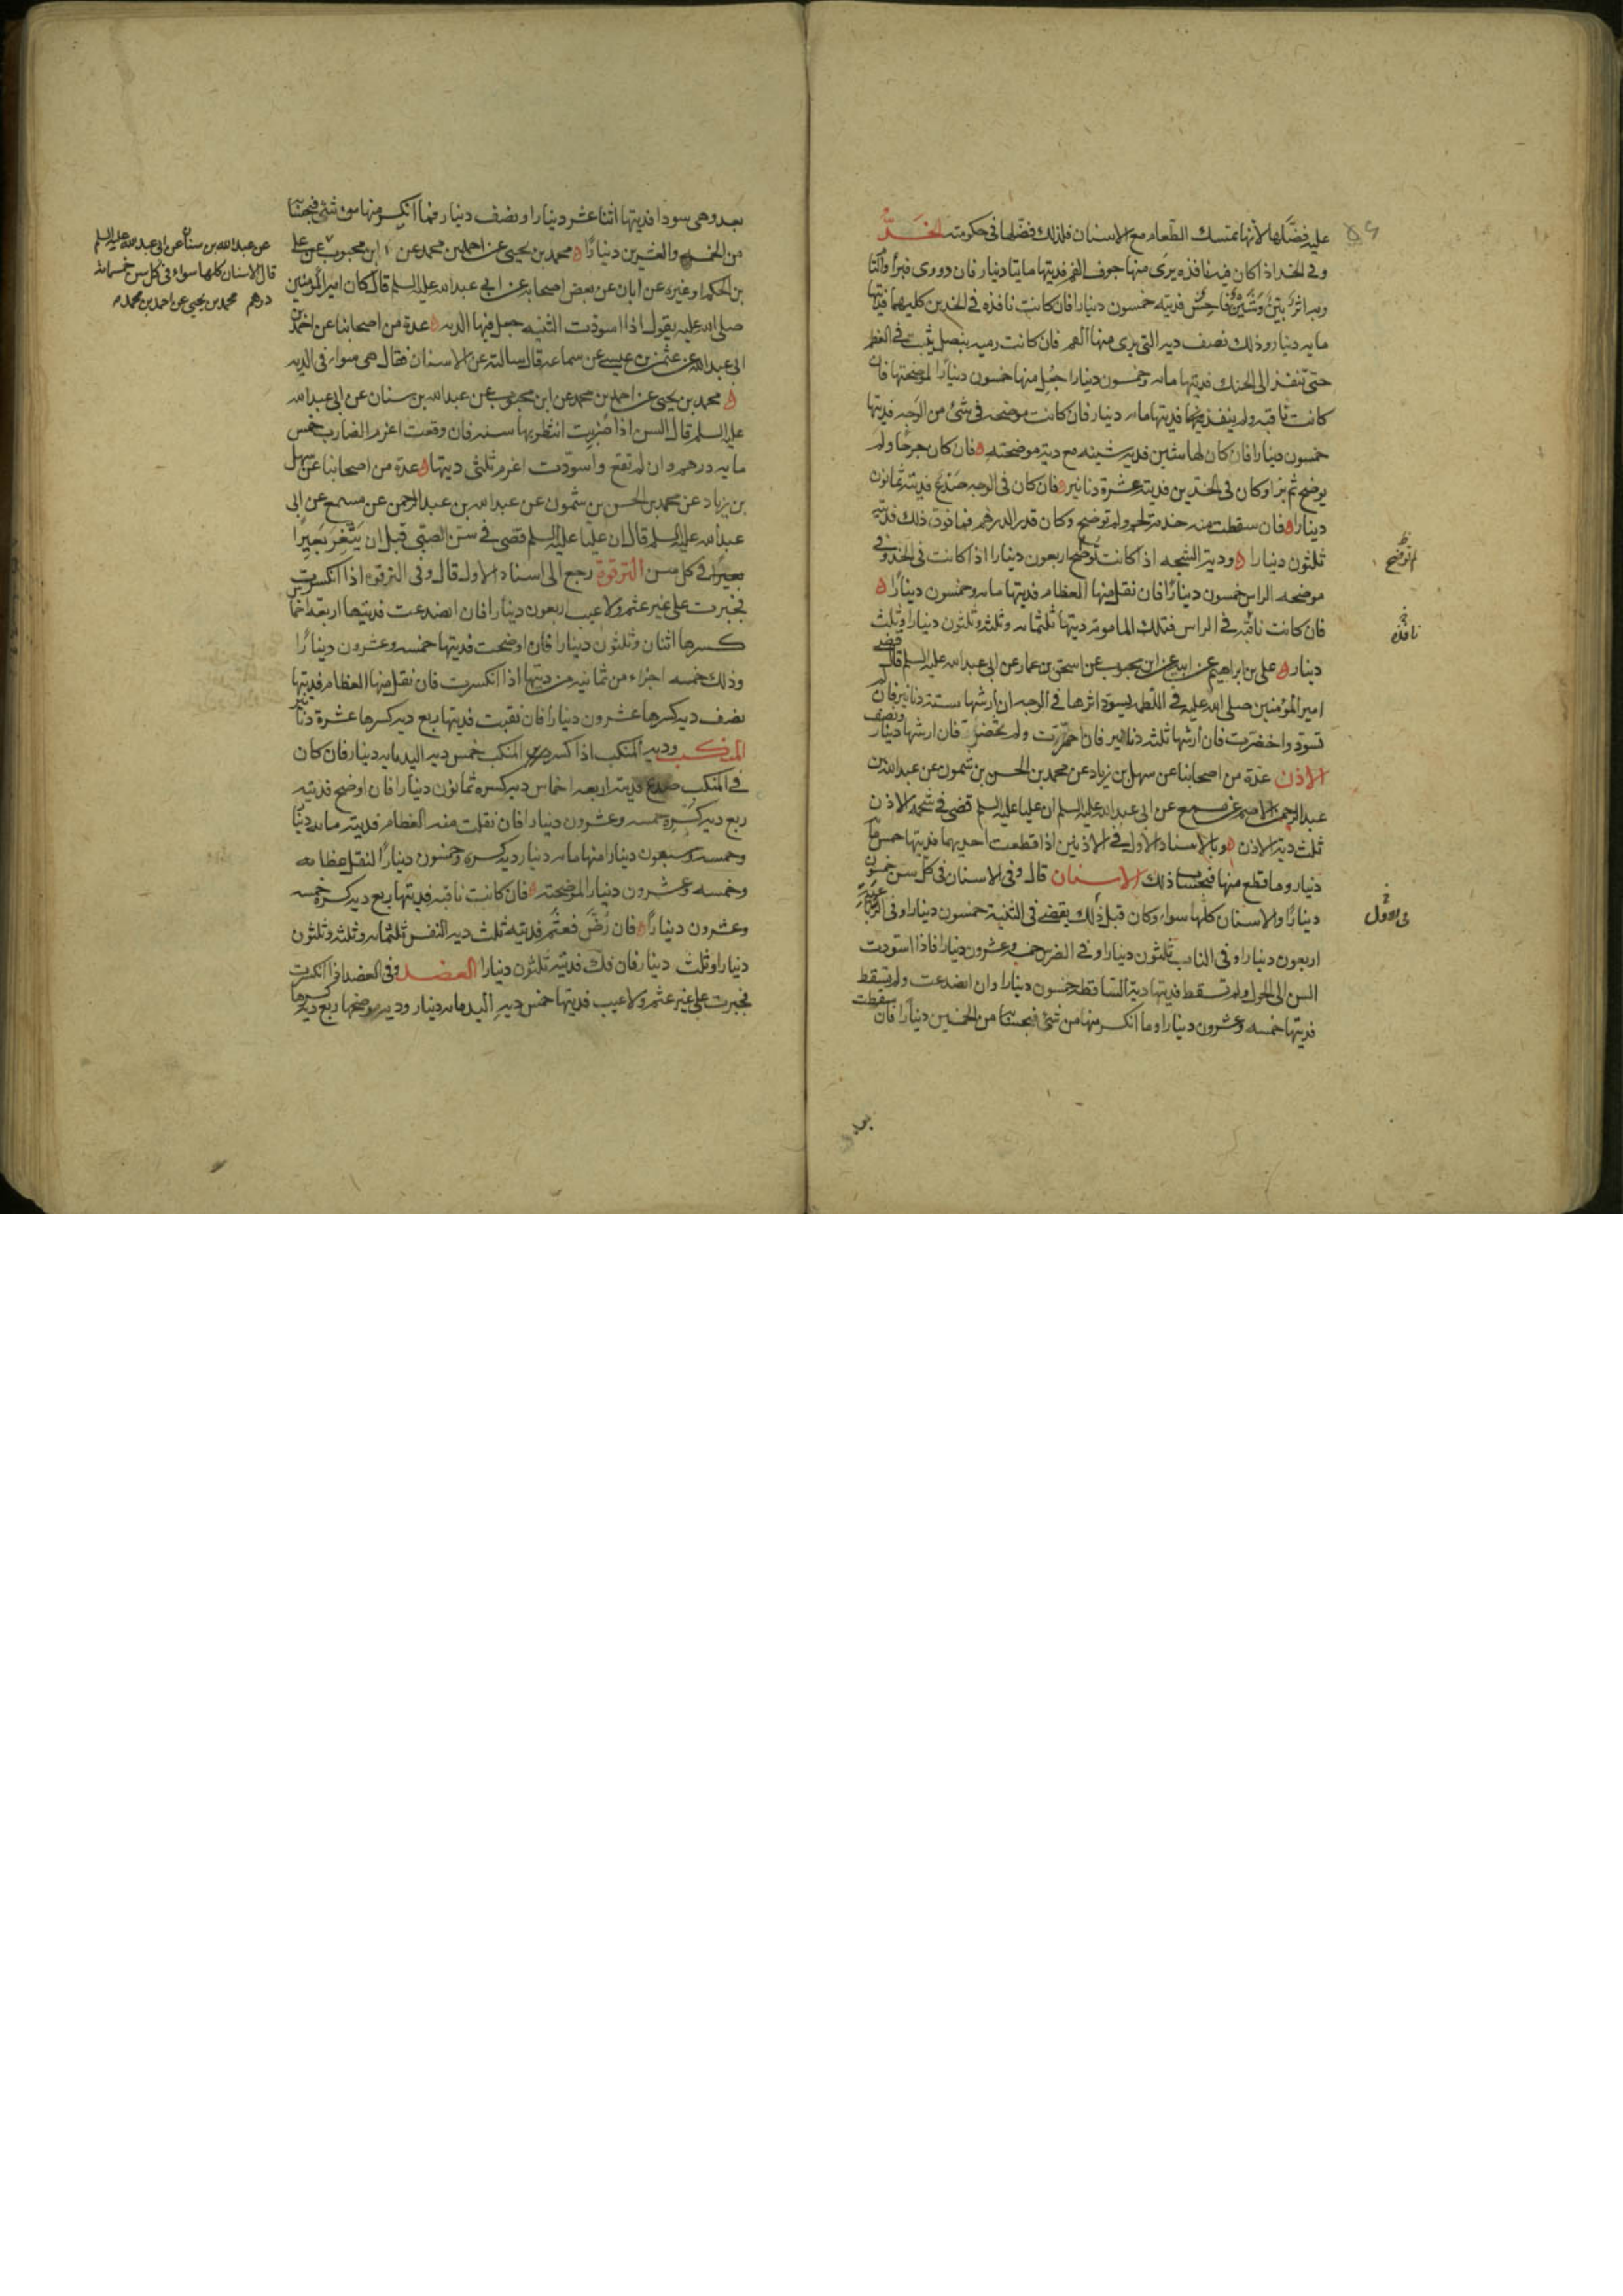 عليه فضّلها لانها تمسك الطعام مع الاسنان فلذلك فضّلها فى حكومته الخَدُّ
وفى الخد اذا كان فيه نافذه يرى منها جوف الفم فديتها مايتا دينار فان دووى فبرأ والتأم
وبه اثر بيّن وشَيْن فاحِش فديته خمسون دينارا فان كانت نافذه فى الخدين كليهما فديتها
مايه دينار وذلك نصف ديه التى يرى منها الفم فان كانت رميه بنصل يثبت فى العظم
حتى تنفذ الى الحنك فديتها مايه وخمسون دينارا جُعِل منها خمسون دينارًا لموضحتها فان
كانت ثاقبه ولم ينفذ فيها فديتها مايه دينار فان كانت موضحه فى شئ من الوجه فديتها
خمسون دينارا فان كان لها شين فديه شينه مع دية موضحته فان كان جرحًا ولم
يوضح ثم برأ وكان فى الخدين فديته عشرة دنانير فان كان فى الوجه صَدْع فديته ثمانون
دينارا فان سقطت منه جذمة لحم ولم توضح وكان قدر الدرهم فما فوق ذلك فديته
ثلثون دينارا ودية الشجه اذا كانت تُوضح اربعون دينارا اذا كانت فى الخد وفى
موضحه الراس خمسون دينارًا فان نقل منها العظام فديتها مايه وخمسون دينارًا
فان كانت ناقبه فى الراس فتلك المامومة ديتها ثلثمايه وثلثه وثلثون دينارا وثلث
دينار على بن ابراهيم عن ابيه عن ابن محبوب عن اسحق بن عمار عن ابى عبدالله عليه السلم قال قضى
امير المؤمنين صلى الله عليه فى اللطمه يسود اثرها فى الوجه ان ارشها ستة دنانير فان لم
تسود واخضرت فان ارشها ثلثه دنانير فان احمرّت ولم تخضر فان ارشها دينار ونصف
الاذن عدة من اصحابنا عن سهل بن زياد عن محمد بن الحسن بن شمون عن عبدالله بن
عبدالرحمن الاصم عن مسمع عن ابى عبدالله عليه السلم ان عليا عليه السلم قضى فى شحمه الاذن
ثلث دية الاذن وبالاسناد الاول فى الاذنين اذا قطعت احديهما فديتها خمس مائه
دينار وما قطع منها فبحساب ذلك الاسنان قال وفى الاسنان فى كل سن خمسون
دينارًا والاسنان كلها سواء وكان قبل ذلك يقضى فى الثنية خمسون دينارا وفى الرباعية
اربعون دينارا وفى الناب ثلثون دينارا وفى الضرس خمسه وعشرون دينارا فاذا اسودت
السن الى الحول ولم تسقط فديتها دية الساقطه خمسون دينارا وان انصدعت ولم تسقط
فديتها خمسه وعشرون دينارا وما انكسر منها من شئ فبحسابه من الخمسين دينارًا فان سقطت
لم توضح
نافذه
فى الاول
بعد
بعد وهى سودا فديتها اثنا عشر دينارا ونصف دينار فما انكسر منها من شئ فبحسابه
من الخمسه والعشرين دينارًا محمد بن يحيى عن احمد بن محمد عن ابن محبوب عن على
بن الحكم او غيره عن ابان عن بعض اصحابه عن ابى عبدالله عليه السلم قال كان امير المؤمنين
صلى الله عليه يقول اذا اسودت الثنيه جعل فيها الديه عدة من اصحابنا عن احمد بن
ابى عبدالله عن عثمن بن عيسى عن سماعه قال سالته عن الاسنان فقال هى سواء فى الديه
محمد بن يحيى عن احمد بن محمد عن ابن محبوب عن عبدالله بن سنان عن ابى عبدالله
عليه السلم قال السن اذا ضُرِبت انتظر بها سنه فان وقعت اغرم الضارب خمس
مايه درهم وان لم تقع واسودت اغرم ثلثى ديتها عدة من اصحابنا عن سهل
بن زياد عن محمد بن الحسن بن شمون عن عبدالله بن عبدالرحمن عن مسمع عن ابى
عبدالله عليه السلم قال ان عليا عليه السلم قضى فى سن الصبى قبل ان يَثَّغِرَ بَعِيرًا
بعيرًا فى كل سن الترقوة رجع الى اسناد الاول قال وفى الترقوه اذا انكسرت
فجبرت على غير عثم ولا عيب اربعون دينارا فان انصدعت فديتها اربعه اخماس
كسرها اثنان وثلثون دينارا فان اوضحت فديتها خمسه وعشرون دينارًا
وذلك خمسه اجزاء من ثمانيه من ديتها اذا انكسرت فان نقل منها العظام فديتها
نصف ديه كسرها عشرون دينارا فان نقبت فديتها ربع ديه كسرها عشرة دنانير
المنكب وديه المنكب اذا كسر المنكب خمس ديه اليد مايه دينار فان كان
فى المنكب صدع فديته اربعه اخماس ديه كسره ثمانون دينارا فان اوضح فديته
ربع ديه كسره خمسه وعشرون دينارا فان نقلت منه العظام فديته مايه دينار
وخمسة وسبعون دينارا منها مايه دينار ديه كسره وخمسون دينارًا لنقل عظامه
وخمسه وعشرون دينارا لموضحته فان كانت ناقبه فديتها ربع ديه كسره خمسه
وعشرون دينارًا فان رُضّ فعثم فديته ثلث ديه النفس ثلثمايه وثلثه وثلثون
دينارا وثلث دينار فان فك فديته ثلثون دينارا العضد وفى العضد اذا انكسرت
فجبرت على غير عثم ولا عيب فديتها خمس ديه اليد مايه دينار وديه موضحتها ربع ديه كسرها
عن عبدالله بن سنان عن ابى عبدالله عليه السلم
قال الاسنان كلها سواء فى كل سن خمسمائة
درهم محمد بن يحيى عن احمد بن محمد